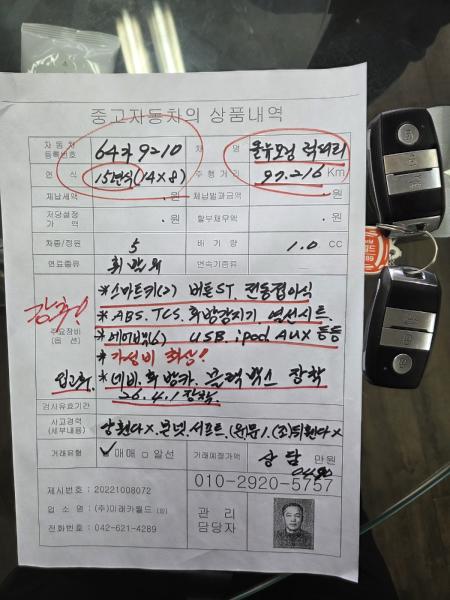 중고자동차의 상품내역
자동차 등록번호 64가9210 차 명 올뉴모닝 럭셔리
연 식 15년식(14×8) 주행거리 97.216 Km
제납세액 원 제납벌과금액 원
저당설정 가 액 원 할부채무액 원
차종/정원 5 배 기 량 1.0 CC
연료종류 휘발유 연속기종류
주요장비 (옵 션)
*스마트키(2) 버튼ST. 전동접이식
*ABS. TCS. 후방감지기. 열선시트.
*에어백(6) USB. ipod AUX 등등
*가성비 최상!
입고후. *네비. 후방카. 블랙박스 장착
26.4.1 장착
검사유효기간
사고경력 (세부내용)
거래유형 ✓매매 □알선 거래예정가액 상담 만원
010-2920-5757
제시번호 : 20221008072
업 소 명 : (주)미래카월드
전화번호 : 042-621-4289
관 리 담당자